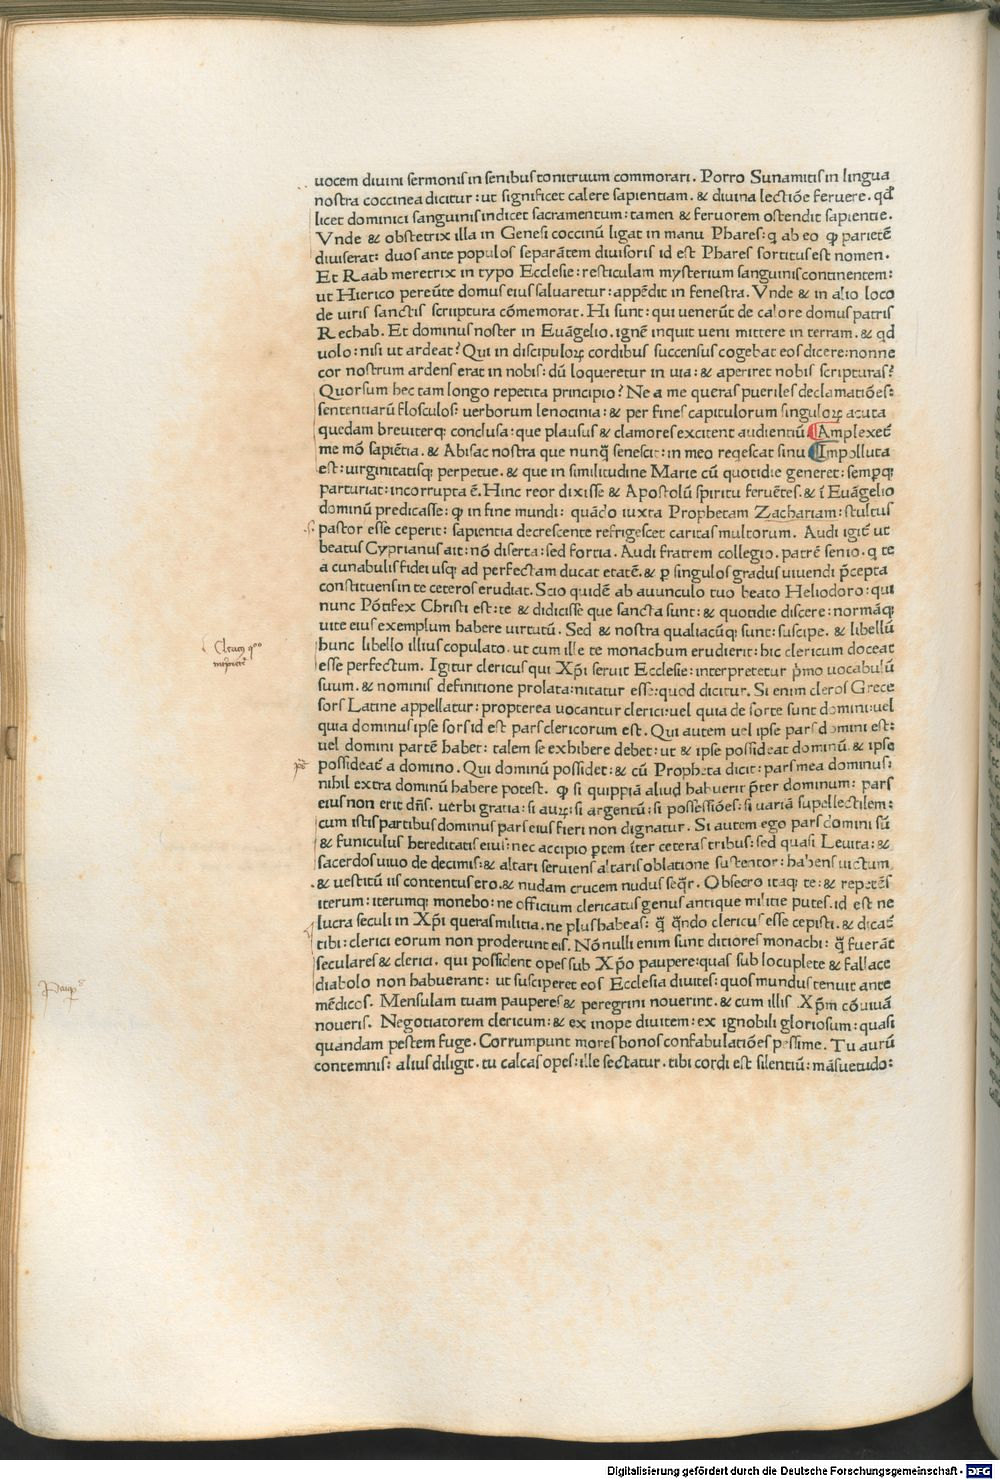 uocem diuini sermonis in senibus tonitruum commorari. Porro Sunamitis in lingua
nostra coccinea dicitur: ut significet calere sapientiam. & diuina lectiõe feruere. qđ
licet dominici sanguinis indicet sacramentum: tamen & feruorem ostendit sapientie.
Vnde & obstetrix illa in Genesi coccinũ ligat in manu Phares: q ab eo ꝙ parietẽ
diuiserat: duos ante populos separãtem diuisoris id est Phares sortitus est nomen.
Et Raab meretrix in typo Ecclesie: resticulam mysterium sanguinis continentem:
ut Hierico pereũte domus eius saluaretur: appẽdit in fenestra. Vnde & in alio loco
de uiris sanctis scriptura cõmemorat. Hi sunt: qui venerũt de calore domus patris
Rechab. Et dominus noster in Euãgelio. ignẽ inquit ueni mittere in terram. & qd
uolo: nisi ut ardeat? Qui in discipuloꝝ cordibus succensus cogebat eos dicere: nonne
cor nostrum ardens erat in nobis: dũ loqueretur in uia: & aperiret nobis scripturas?
Quorsum hec tam longo repetita principio? Ne a me queras pueriles declamatiões:
sententiarũ flosculos: verborum lenocinia: & per fines capitulorum singuloꝝ acuta
quedam breuiterqꝫ conclusa: que plausus & clamores excitent audientiũ. Amplexet̃
me mõ sapiẽtia. & Abisac nostra que nunq̃ senescit: in meo reqescat sinu Impolluta
est: uirginitatisqꝫ perpetue. & que in similitudine Marie cũ quotidie generet: semꝑqꝫ
parturiat: incorrupta ẽ. Hinc reor dixisse & Apostolũ spiritu feruẽtes. & ĩ Euãgelio
dominũ predicasse: ꝙ in fine mundi: quãdo iuxta Prophetam Zachariam: stultus
pastor esse ceperit: sapientia decrescente refrigescet caritas multorum. Audi igit̃ ut
beatus Cyprianus ait: nõ diserta: sed fortia. Audi fratrem collegio. patrẽ senio. q te
a cunabulis fidei usqꝫ ad perfectam ducat etatẽ. & ꝑ singulos gradus uiuendi p̃cepta
constituens in te ceteros erudiat. Scio quidẽ ab auunculo tuo beato Heliodoro: qui
nunc Põtifex Christi est: te & didicisse que sancta sunt: & quotidie discere: normãqꝫ
uite eius exemplum habere uirtutũ. Sed & nostra qualiacũqꝫ sunt: suscipe. & libellũ
hunc libello illius copulato. ut cum ille te monachum erudierit: hic clericum doceat
esse perfectum. Igitur clericus qui Xp̃i seruit Ecclesie: interpretetur p̃mo uocabulũ
suum. & nominis definitione prolata: nitatur esse: quod dicitur. Si enim cleros Grece
sors Latine appellatur: propterea uocantur clerici: uel quia de sorte sunt domini: uel
quia dominus ipse sors id est pars clericorum est. Qui autem uel ipse pars domini est:
uel domini partẽ habet: talem se exhibere debet: ut & ipse possideat dominũ & ipse
possideat̃ a domino. Qui dominũ possidet: & cũ Propheta dicit: pars mea dominus:
nihil extra dominũ habere potest. ꝙ si quippiã aliud habuerit p̃ter dominum: pars
eius non erit dñs. uerbi gratia: si auꝝ: si argentũ: si possessiões: si uariã supellectilem:
cum istis partibus dominus pars eius fieri non dignatur. Si autem ego pars domini sũ
& funiculus hereditatis eius: nec accipio ꝑtem ĩter ceteras tribus: sed quasi Leuita: &
sacerdos uiuo de decimis: & altari seruiens altaris oblatione sustentor: habens uictum
& uestitũ iis contentus ero. & nudam crucem nudus seq̃r. Obsecro itaqꝫ te: & repetẽs
iterum: iterumqꝫ monebo: ne officium clericatus genus antique militie putes. id est ne
lucra seculi in Xp̃i queras militia. ne plus habeas: q̃ q̃ndo clericus esse cepisti. & dicat̃
tibi: clerici eorum non proderunt eis. Nõnulli enim sunt ditiores monachi: q̃ fuerãt
seculares & clerici. qui possident opes sub Xp̃o paupere: quas sub locuplete & fallace
diabolo non habuerant: ut susciperet eos Ecclesia diuites: quos mundus tenuit ante
mẽdicos. Mensulam tuam pauperes & peregrini nouerint. & cum illis Xp̃m cõuiuã
noueris. Negotiatorem clericum: & ex inope diuitem: ex ignobili gloriosum: quasi
quandam pestem fuge. Corrumpunt mores bonos confabulatiões pessime. Tu aurũ
contemnis: alius diligit. tu calcas opes: ille sectatur. tibi cordi est silentiũ: mãsuetudo:
Digitalisierung gefördert durch die Deutsche Forschungsgemeinschaft - DFG